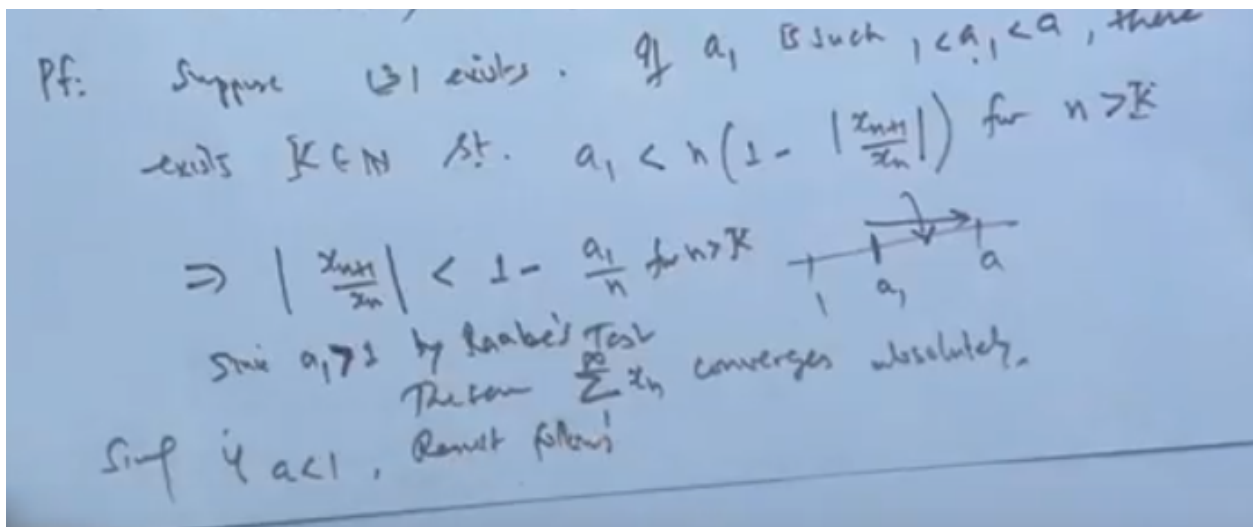 Pf: Suppose (3) exists. If a₁ is such 1 < a₁ < a, there
exists K ∈ ℕ st. a₁ < n(1 - |xₙ₊₁/xₙ|) for n > K
⇒ |xₙ₊₁/xₙ| < 1 - a₁/n for n > K
1 a₁ a
Since a₁ > 1 by Raabe's Test
The sum ∞ Σ 1 xₙ converges absolutely.
if a < 1, Result follows